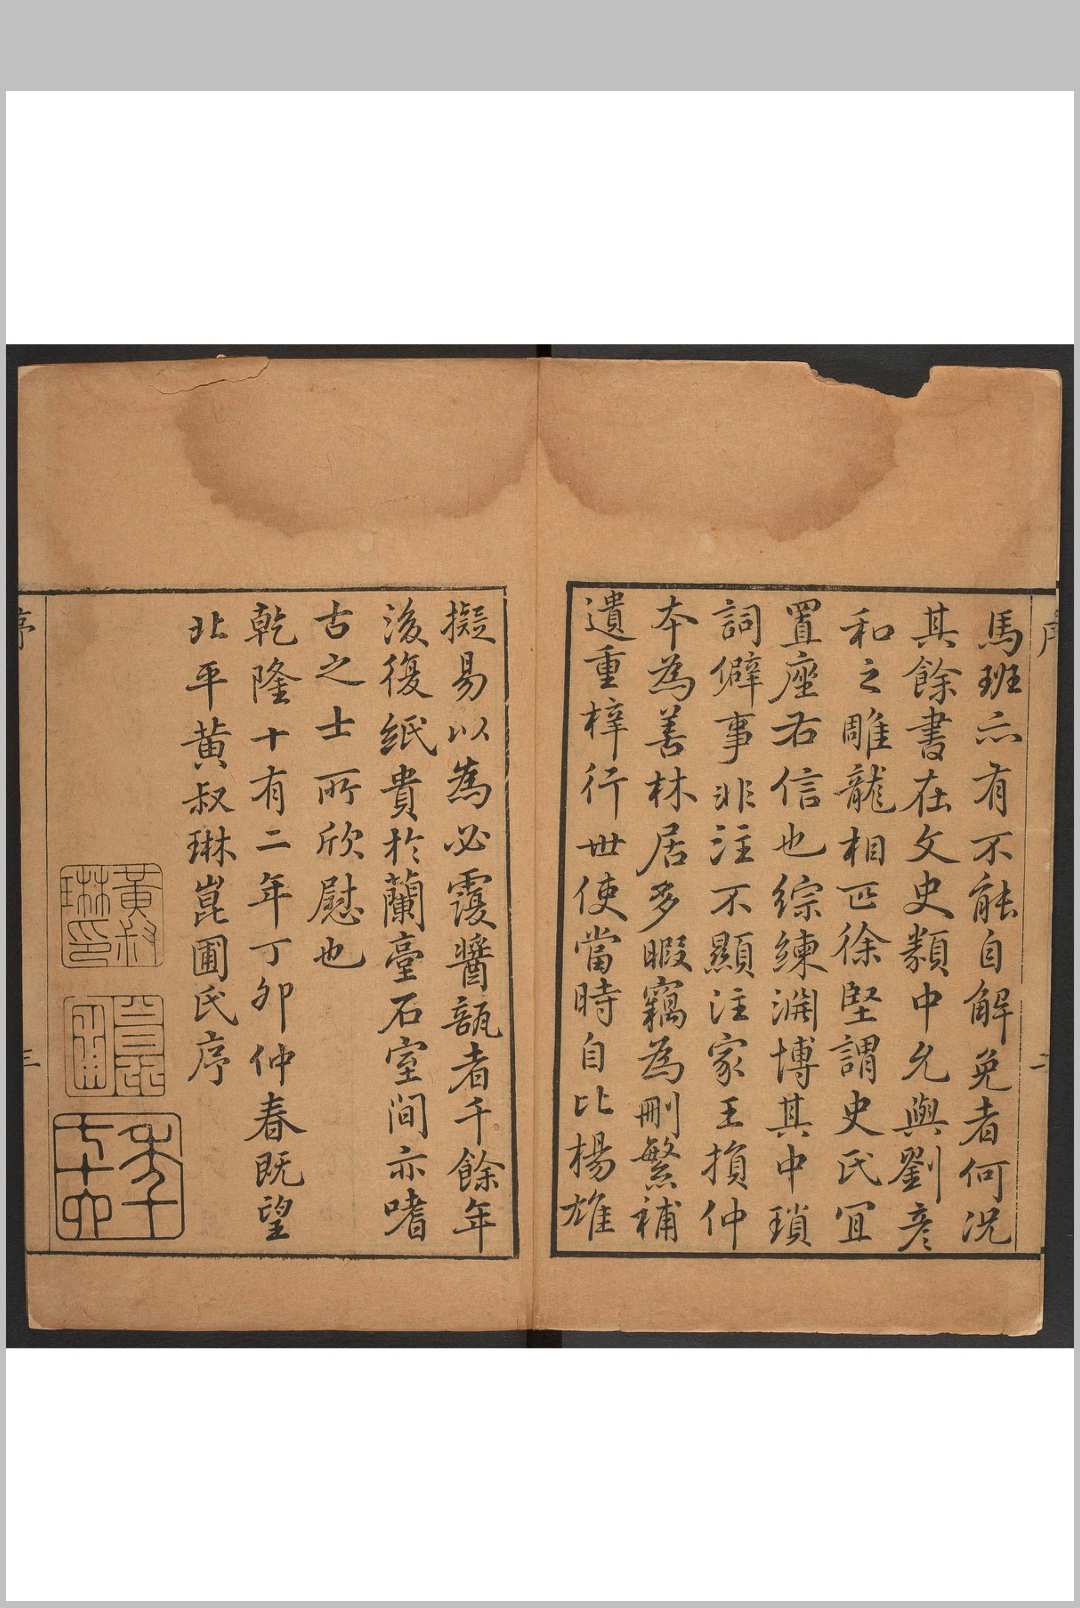 馬班亦有不能自解免者何況
其餘書在文史類中允與劉彦
和之雕龍相匹徐堅謂史氏宜
置座右信也綜練淵博其中瑣
詞僻事非注不顯注家王損仲
本為善林居多暇竊為刪繁補
遺重梓行世使當時自比楊雄
擬易以為必覆醬瓿者千餘年
後復紙貴於蘭臺石室間亦嗜
古之士所欣慰也
乾隆十有二年丁卯仲春既望
北平黄叔琳崑圃氏序
黃叔琳印
崑圃
序
三
序
二